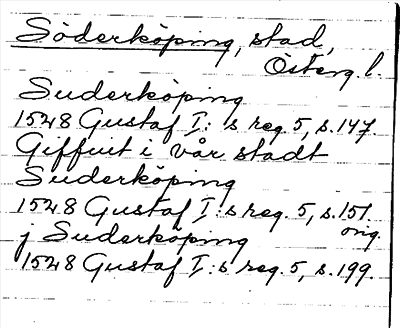 Söderköping, stad,
Österg. l.
Suderköping
1528 Gustaf I:s reg. 5, s. 147.
Giffuit i vår stadt
Suderköping
1528 Gustaf I:s reg. 5, s. 151.
orig.
j Suderköping
1528 Gustaf I:s reg. 5, s. 199.